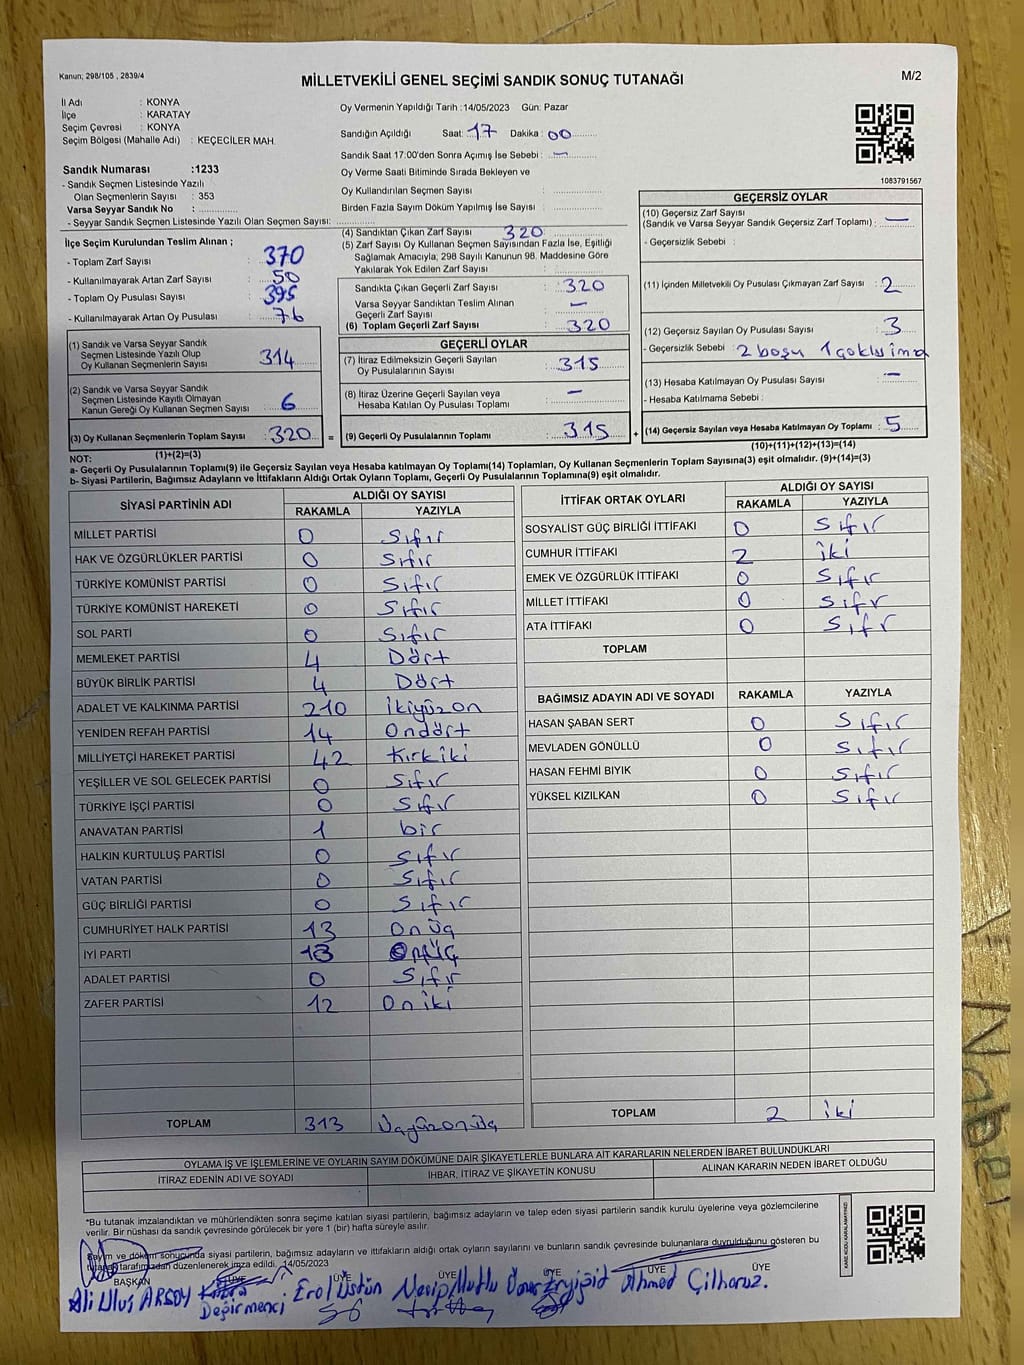 Kanun; 298/105 , 2839/4
MİLLETVEKİLİ GENEL SEÇİMİ SANDIK SONUÇ TUTANAĞI
M/2
İl Adı : KONYA
İlçe : KARATAY
Seçim Çevresi : KONYA
Seçim Bölgesi (Mahalle Adı) : KEÇECİLER MAH.
Oy Vermenin Yapıldığı Tarih :14/05/2023 Gün: Pazar
Sandığın Açıldığı Saat: 17 Dakika : 00
Sandık Saat 17:00'den Sonra Açımış İse Sebebi : —
Oy Verme Saati Bitiminde Sırada Bekleyen ve
Oy Kullandırılan Seçmen Sayısı :
Birden Fazla Sayım Döküm Yapılmış İse Sayısı :
1083791567
Sandık Numarası :1233
- Sandık Seçmen Listesinde Yazılı
Olan Seçmenlerin Sayısı : 353
Varsa Seyyar Sandık No :
- Seyyar Sandık Seçmen Listesinde Yazılı Olan Seçmen Sayısı:
İlçe Seçim Kurulundan Teslim Alınan ;
- Toplam Zarf Sayısı : 370
- Kullanılmayarak Artan Zarf Sayısı : 50
- Toplam Oy Pusulası Sayısı : 395
- Kullanılmayarak Artan Oy Pusulası : 76
(1) Sandık ve Varsa Seyyar Sandık
Seçmen Listesinde Yazılı Olup
Oy Kullanan Seçmenlerin Sayısı : 314
(2) Sandık ve Varsa Seyyar Sandık
Seçmen Listesinde Kayıtlı Olmayan
Kanun Gereği Oy Kullanan Seçmen Sayısı : 6
(3) Oy Kullanan Seçmenlerin Toplam Sayısı : 320 =
(1)+(2)=(3)
(4) Sandıktan Çıkan Zarf Sayısı : 320
(5) Zarf Sayısı Oy Kullanan Seçmen Sayısından Fazla İse, Eşitliği
Sağlamak Amacıyla, 298 Sayılı Kanunun 98. Maddesine Göre
Yakılarak Yok Edilen Zarf Sayısı :
Sandıkta Çıkan Geçerli Zarf Sayısı : 320
Varsa Seyyar Sandıktan Teslim Alınan
Geçerli Zarf Sayısı : —
(6) Toplam Geçerli Zarf Sayısı : 320
GEÇERLİ OYLAR
(7) İtiraz Edilmeksizin Geçerli Sayılan
Oy Pusulalarının Sayısı : 315
(8) İtiraz Üzerine Geçerli Sayılan veya
Hesaba Katılan Oy Pusulası Toplamı : —
(9) Geçerli Oy Pusulalarının Toplamı : 315 +
GEÇERSİZ OYLAR
(10) Geçersiz Zarf Sayısı
(Sandık ve Varsa Seyyar Sandık Geçersiz Zarf Toplamı) : —
- Geçersizlik Sebebi :
(11) İçinden Milletvekili Oy Pusulası Çıkmayan Zarf Sayısı : 2
(12) Geçersiz Sayılan Oy Pusulası Sayısı : 3
- Geçersizlik Sebebi : 2 boşu 1
(13) Hesaba Katılmayan Oy Pusulası Sayısı : —
- Hesaba Katılmama Sebebi :
(14) Geçersiz Sayılan veya Hesaba Katılmayan Oy Toplamı : 5
(10)+(11)+(12)+(13)=(14)
NOT:
a- Geçerli Oy Pusulalarının Toplamı(9) ile Geçersiz Sayılan veya Hesaba katılmayan Oy Toplamı(14) Toplamları, Oy Kullanan Seçmenlerin Toplam Sayısına(3) eşit olmalıdır. (9)+(14)=(3)
b- Siyasi Partilerin, Bağımsız Adayların ve İttifakların Aldığı Ortak Oyların Toplamı, Geçerli Oy Pusulalarının Toplamına(9) eşit olmalıdır.
SİYASİ PARTİNİN ADI ALDIĞI OY SAYISI
RAKAMLA YAZIYLA
MİLLET PARTİSİ 0 Sıfır
HAK VE ÖZGÜRLÜKLER PARTİSİ 0 Sıfır
TÜRKİYE KOMÜNİST PARTİSİ 0 Sıfır
TÜRKİYE KOMÜNİST HAREKETİ 0 Sıfır
SOL PARTİ 0 Sıfır
MEMLEKET PARTİSİ 4 Dört
BÜYÜK BİRLİK PARTİSİ 4 Dört
ADALET VE KALKINMA PARTİSİ 210 İkiyüzon
YENİDEN REFAH PARTİSİ 14 Ondört
MİLLİYETÇİ HAREKET PARTİSİ 42 Kırkiki
YEŞİLLER VE SOL GELECEK PARTİSİ 0 Sıfır
TÜRKİYE İŞÇİ PARTİSİ 0 Sıfır
ANAVATAN PARTİSİ 1 bir
HALKIN KURTULUŞ PARTİSİ 0 Sıfır
VATAN PARTİSİ 0 Sıfır
GÜÇ BİRLİĞİ PARTİSİ 0 Sıfır
CUMHURİYET HALK PARTİSİ 13 Onüç
İYİ PARTİ 13 Onüç
ADALET PARTİSİ 0 Sıfır
ZAFER PARTİSİ 12 Oniki
TOPLAM 313 Üçyüzonüç
İTTİFAK ORTAK OYLARI ALDIĞI OY SAYISI
RAKAMLA YAZIYLA
SOSYALİST GÜÇ BİRLİĞİ İTTİFAKI 0 Sıfır
CUMHUR İTTİFAKI 2 iki
EMEK VE ÖZGÜRLÜK İTTİFAKI 0 Sıfır
MİLLET İTTİFAKI 0 Sıfır
ATA İTTİFAKI 0 Sıfır
TOPLAM
BAĞIMSIZ ADAYIN ADI VE SOYADI RAKAMLA YAZIYLA
HASAN ŞABAN SERT 0 Sıfır
MEVLADEN GÖNÜLLÜ 0 Sıfır
HASAN FEHMİ BIYIK 0 Sıfır
YÜKSEL KIZILKAN 0 Sıfır
TOPLAM 2 iki
OYLAMA İŞ VE İŞLEMLERİNE VE OYLARIN SAYIM DÖKÜMÜNE DAİR ŞİKAYETLERLE BUNLARA AİT KARARLARIN NELERDEN İBARET BULUNDUKLARI
İTİRAZ EDENİN ADI VE SOYADI İHBAR, İTİRAZ VE ŞİKAYETİN KONUSU ALINAN KARARIN NEDEN İBARET OLDUĞU
*Bu tutanak imzalandıktan ve mühürlendikten sonra seçime katılan siyasi partilerin, bağımsız adayların ve talep eden siyasi partilerin sandık kurulu üyelerine veya gözlemcilerine
verilir. Bir nüshası da sandık çevresinde görülecek bir yere 1 (bir) hafta süreyle asılır.
Sayım ve döküm sonucunda siyasi partilerin, bağımsız adayların ve ittifakların aldığı ortak oyların sayılarını ve bunların sandık çevresinde bulunanlara duyrulduğunu gösteren bu
tutanak tarafımızdan düzenlenerek imza edildi. 14/05/2023
BAŞKAN ÜYE ÜYE ÜYE ÜYE ÜYE ÜYE
Ali Uluş ARSOY Kübra Değirmenci Erol Üstün Necip Mutlu Ömer Eryiğit Ahmed Çilhoroz.